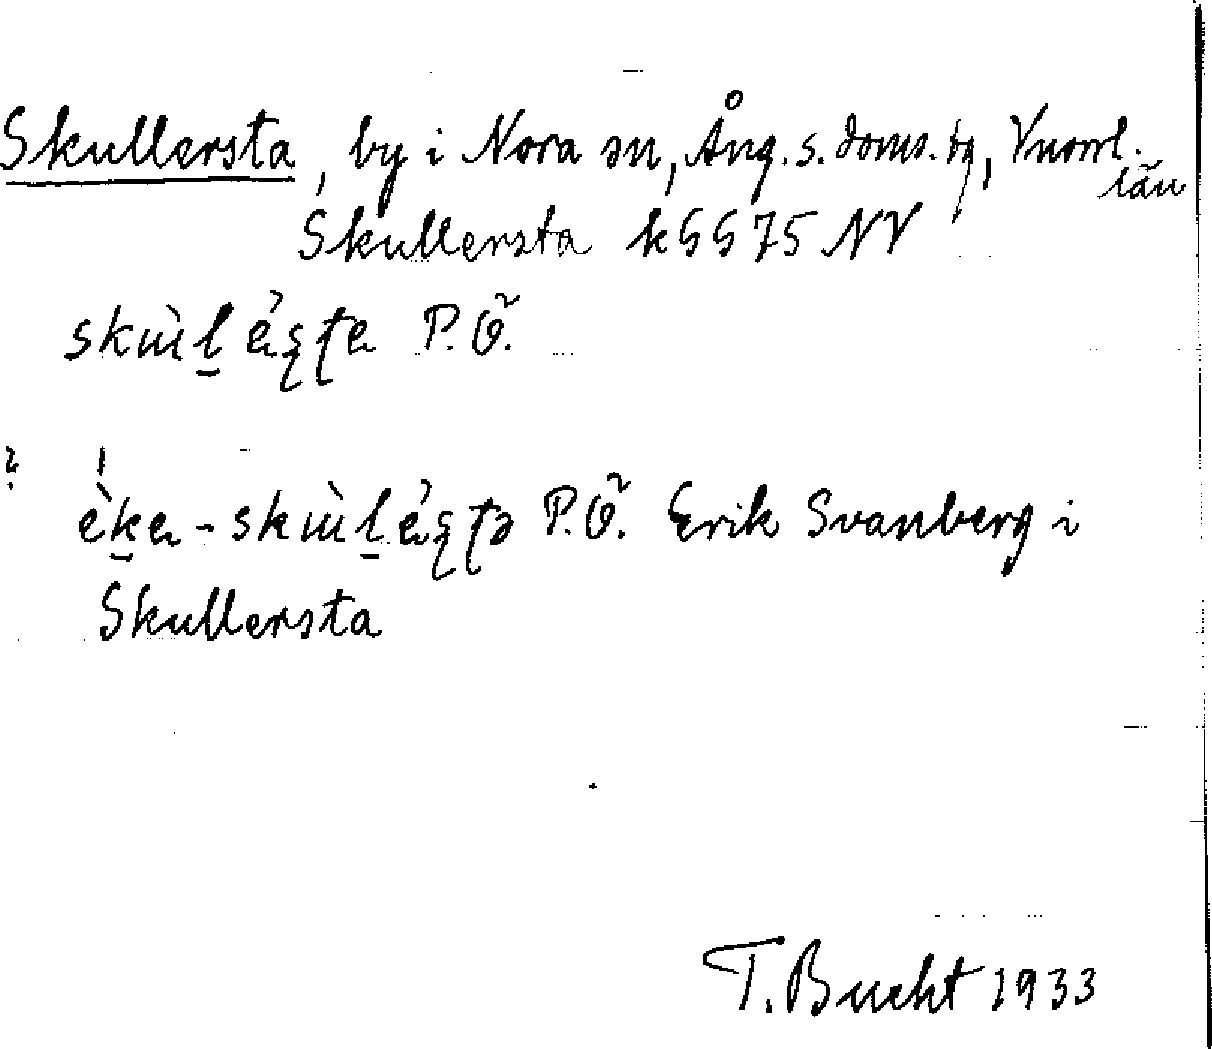 Skullersta, by i Nora sn, Ång. s. doms. tg, Vnorrl. län
Skullersta k 6675 NV
skùl̠ ȧʂʈa P.Ö.
èk̠a - skùl̠ȧʂʈə P.Ö. Erik Svanberg i
Skullersta
T. Bucht 1933